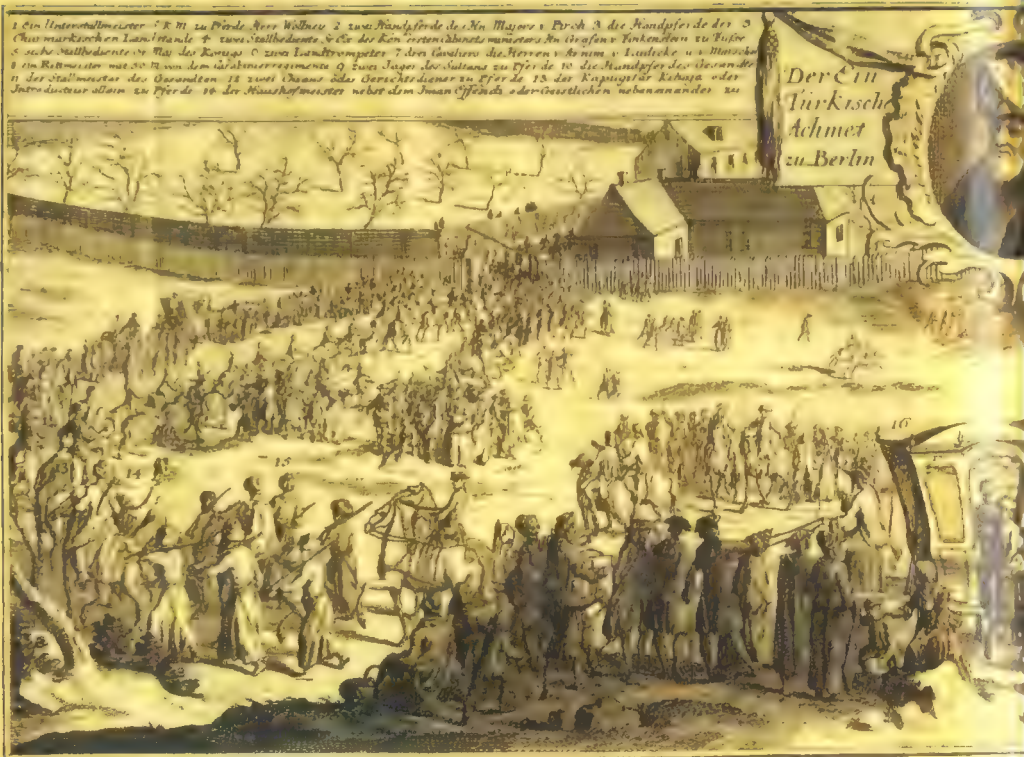 1 Ein Unterstallmeister S K M zu Pferde Herr Wollney 2 zwei Handpferde des Hn Majors v Pirch 3 die Handpferde der
Churmärkischen Landstände 4 zwei Stallbediente Sr Ex des Kön ersten Cabinetsministers Hn Grafen v Finkenstein zu Fusse
5 sechs Stallbediente Sr Maj des Königs 6 zwei Landtrompeter 7 drei Cavaliers die Herren v Arnim v Lüdicke u v
8 ein Rittmeister mit 30 M von dem Carabinierregimente 9 zwei Jäger des Sultans zu Pferde 10 die Handpferde des Gesandten
11 der Stallmeister des Gesandten 12 zwei Chiaus oder Gerichtsdiener zu Pferde 13 der Kapugilar Kehaja oder
Introducteur allein zu Pferde 14 der Haushofmeister nebst dem Iman Effendi oder Geistlichen nebeneinander zu
Der Ein
Türkisch
Achmet
zu Berlin
16
13
14
15